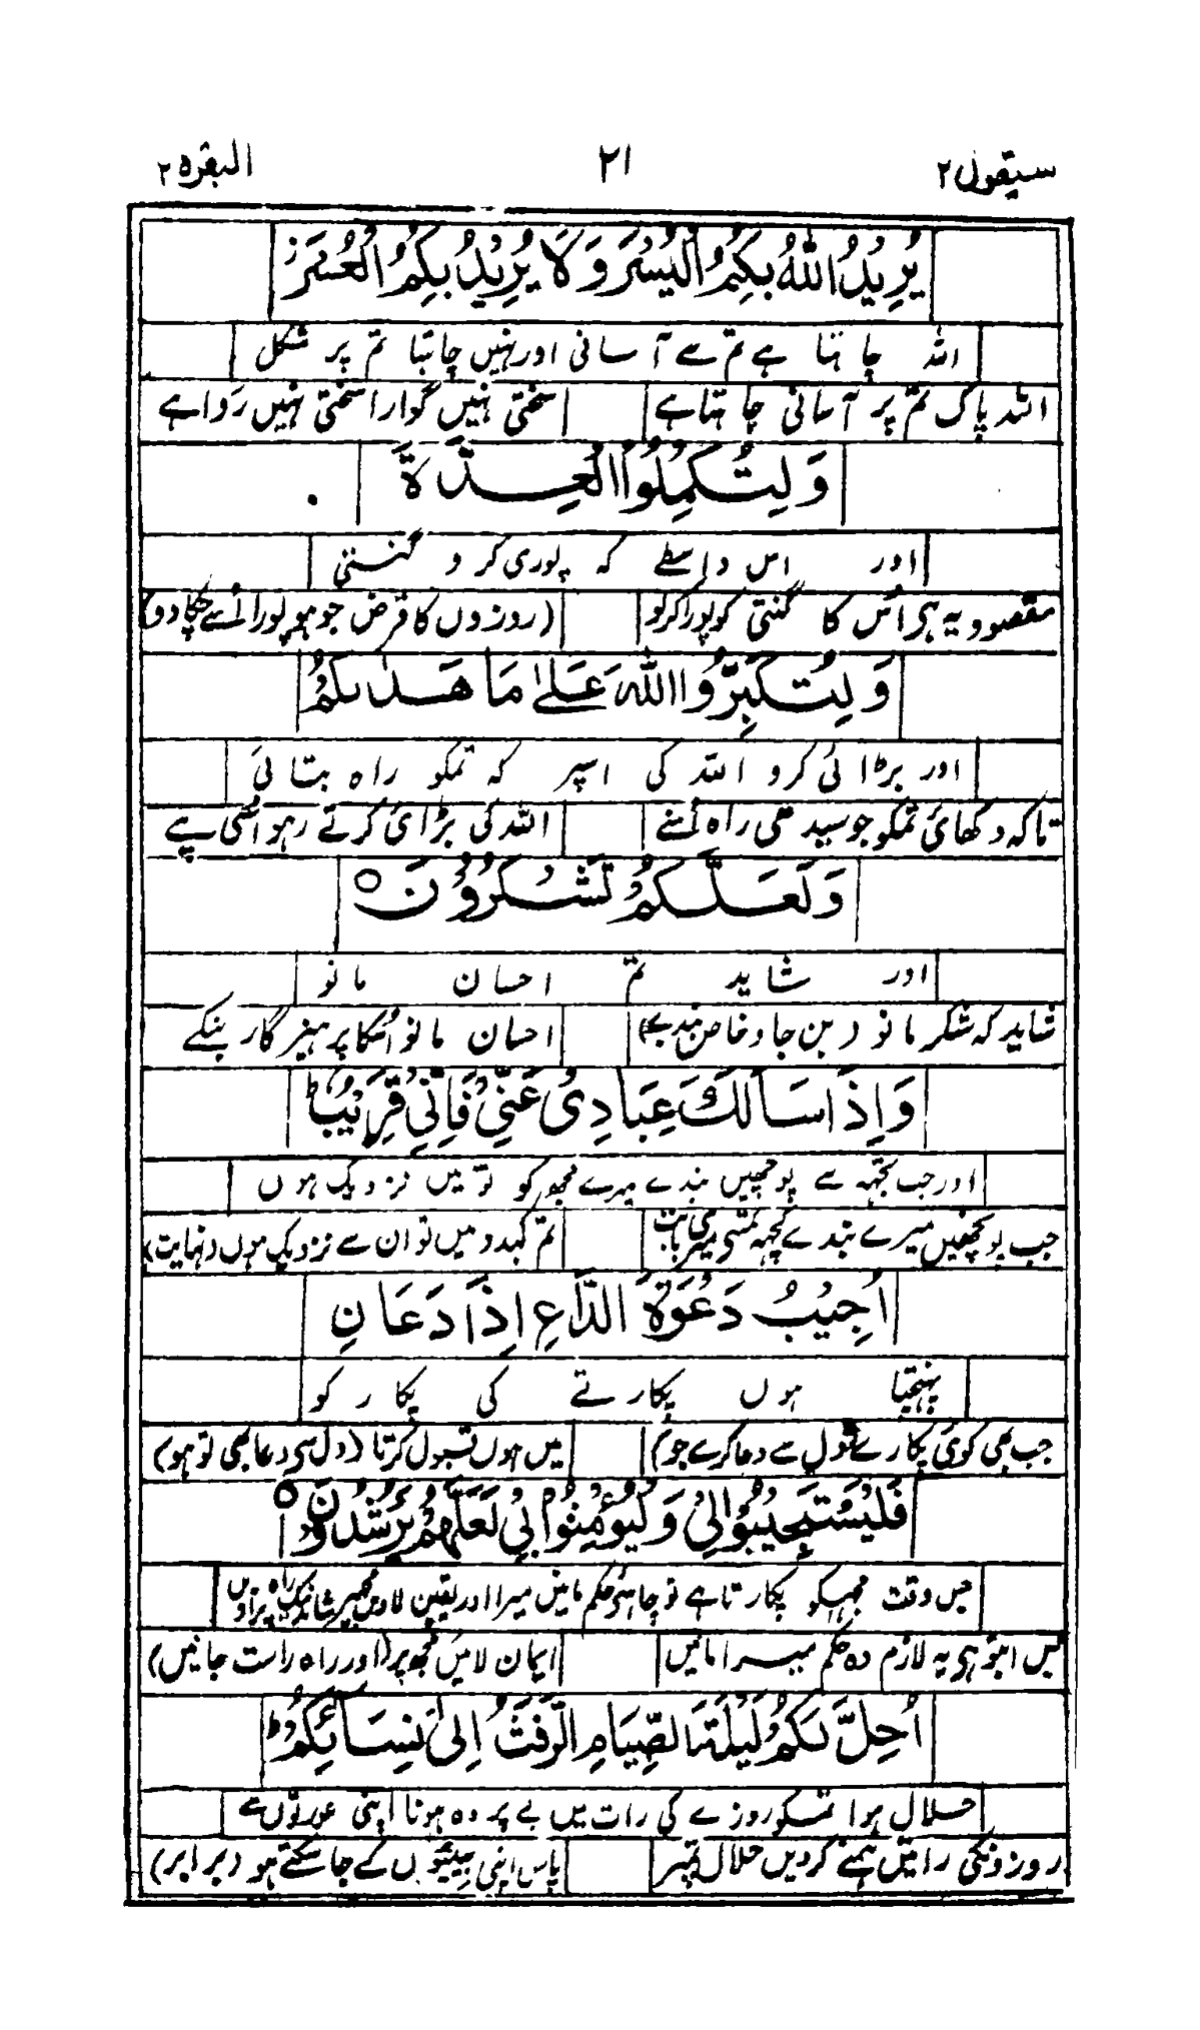 سیقول ۲ ۲۱ البقرہ ۲
یُرِیْدُ اللّٰهُ بِکُمُ الْیُسْرَ وَ لَا یُرِیْدُ بِکُمُ الْعُسْرَ
اللہ چاہتا ہے تم سے آسانی اور نہیں چاہتا تم پر مشکل
اللہ پاک تم پر آسانی چاہتا ہے سختی نہیں گوارا سختی نہیں روا ہے
وَ لِتُکْمِلُوا الْعِدَّةَ
اور اس واسطے کہ پوری کرو گنتی
مقصود یہ ہر اس کا گنتی کو پورا کرلو (روزوں کا قرض جو ہو پورا اسے چکا دو)
وَ لِتُکَبِّرُوا اللّٰهَ عَلٰی مَا هَدٰىکُمْ
اور بڑائی کرو اللہ کی اسپر کہ تمکو راہ بتائی
تاکہ دکھائی تمکو جو سیدھی راہ اسنے اللہ کی بڑائی کرتے رہو اسی پے
وَ لَعَلَّکُمْ تَشْکُرُوْنَ ○
اور شاید تم احسان مانو
شاید کہ شکر مانو (بن جاو خاص بندے) احسان مانو اسکا پرہیزگار بنکے
وَ اِذَا سَاَلَكَ عِبَادِیْ عَنِّیْ فَاِنِّیْ قَرِیْبٌ ط
اور جب تجھ سے پوچھیں بندے میرے مجھ کو تو میں نزدیک ہوں
جب پوچھیں میرے بندے کچھ تمسے میری بابت تم کہدو میں تو ان سے نزدیک ہوں (نہایت)
اُجِیْبُ دَعْوَةَ الدَّاعِ اِذَا دَعَانِ
پہنچتا ہوں پکارتے کی پکار کو
جب بھی کوئی پکارے (دل سے دعا کرے جو) میں ہوں قبول کرتا (دل سی دعا بھی تو ہو)
فَلْیَسْتَجِیْبُوْا لِیْ وَ لْیُؤْمِنُوْا بِیْ لَعَلَّهُمْ یَرْشُدُوْنَ ○
جس وقت مجہکو پکارتا ہے تو چاہئے حکم مانیں میرا اور یقین لاویں مجھپر شاید نیک راہ پر آویں
پس انپر ہی یہ لازم وہ حکم میرا مانیں ایمان لائیں مجھپر (اور راہ راست جانیں)
اُحِلَّ لَکُمْ لَیْلَةَ الصِّیَامِ الرَّفَثُ اِلٰی نِسَآئِکُمْ ط
حلال ہوا تمکو روزے کی رات میں بے پردہ ہونا اپنی عورتوں سے
روزونکی راتیں ہمنے کردیں حلال تمپر پاس اپنی بیبیوں کے جا سکتے ہو (برابر)